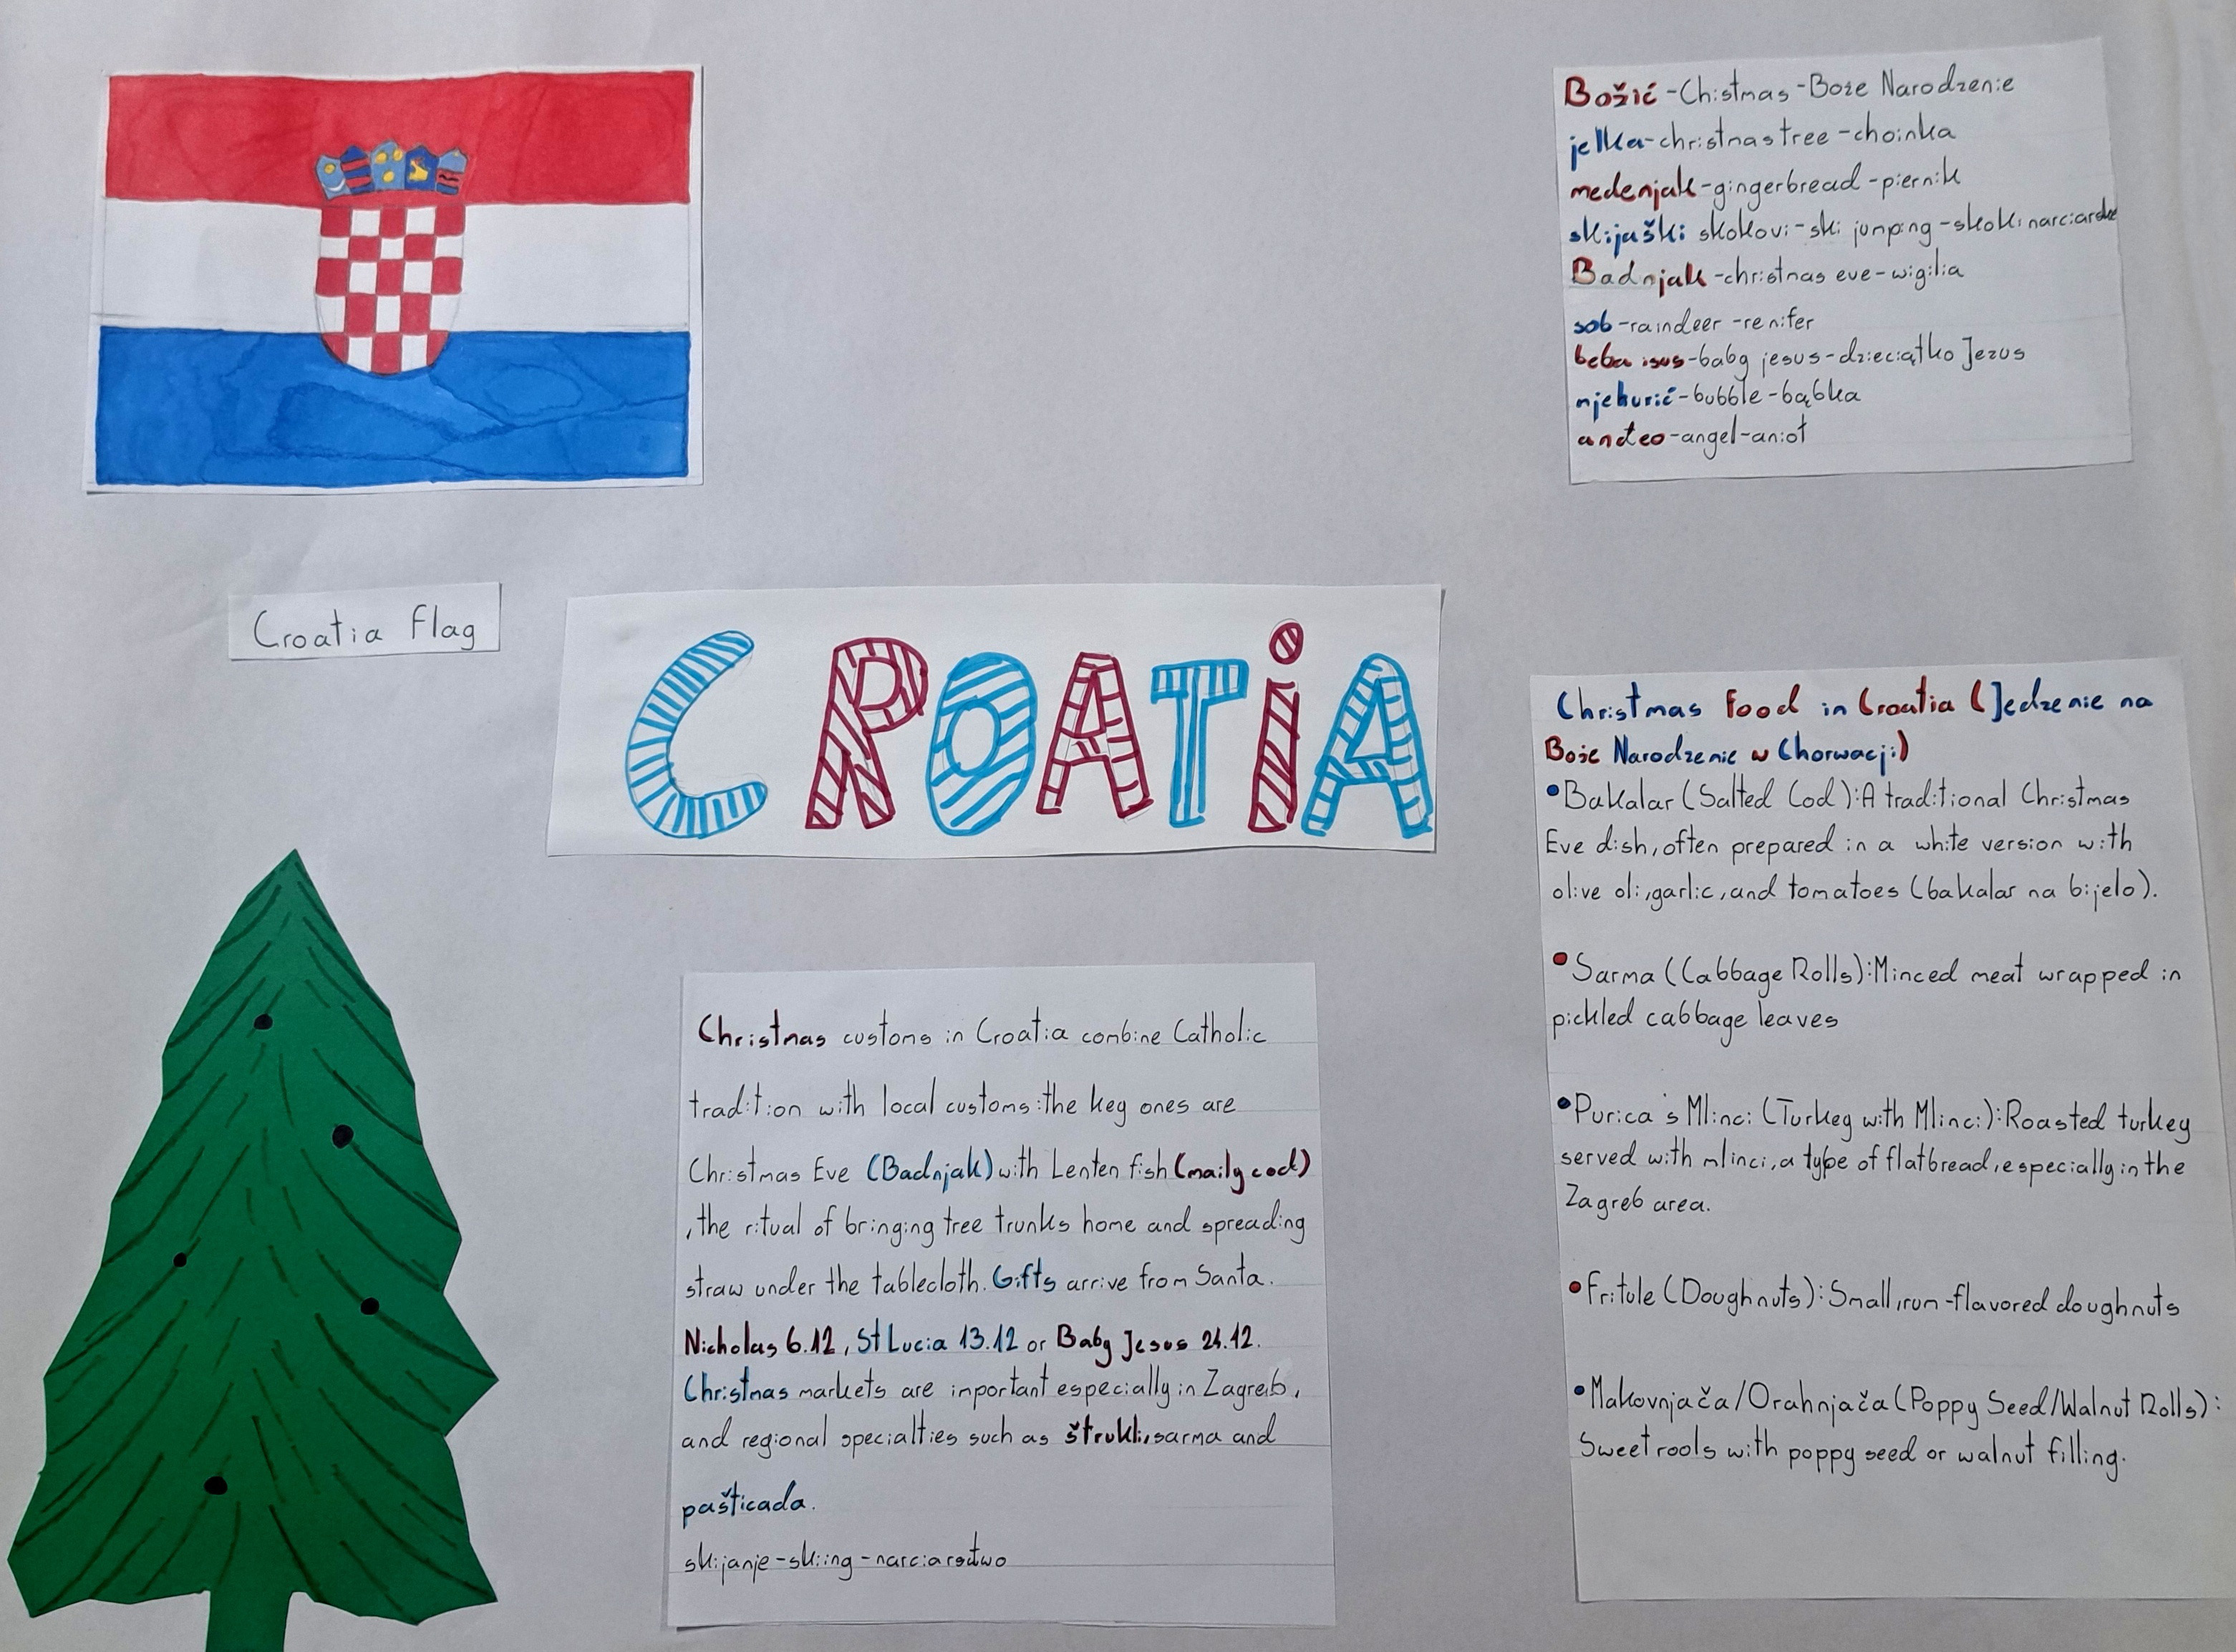 Božić-Chistmas-Boże Narodzenie
jelka-christmas tree-choinka
medenjak-gingerbread-piernik
skijaški skokovi-ski jumping-skoki narciarskie
Badnjak-christmas eve-wigilia
sob-raindeer-renifer
beba isus-baby jesus-dzieciątko Jezus
mjehurić-bubble-bąbka
anđeo-angel-anioł
Croatia Flag
CROATiA
Christmas Food in Croatia (Jedzenie na
Boże Narodzenie w Chorwacji)
•Bakalar (Salted Cod):A traditional Christmas
Eve dish,often prepared in a white version with
olive oli,garlic,and tomatoes (bakalar na bijelo).
•Sarma (Cabbage Rolls):Minced meat wrapped in
pickled cabbage leaves
•Purica s Mlinci (Turkey with Mlinci):Roasted turkey
served with mlinci,a type of flatbread,especially in the
Zagreb area.
•Fritule (Doughnuts):Small,rum-flavored doughnuts
•Makovnjača/Orahnjača (Poppy Seed/Walnut Rolls):
Sweet rools with poppy seed or walnut filling.
Christmas customs in Croatia combine Catholic
tradition with local customs:the key ones are
Christmas Eve (Badnjak) with Lenten fish (maily cod)
,the ritual of bringing tree trunks home and spreading
straw under the tablecloth. Gifts arrive from Santa.
Nicholas 6.12, St Lucia 13.12 or Baby Jesus 24.12.
Christmas markets are important especially in Zagreb,
and regional specialties such as štrukli,sarma and
pašticada.
skijanje-skiing-narciarstwo